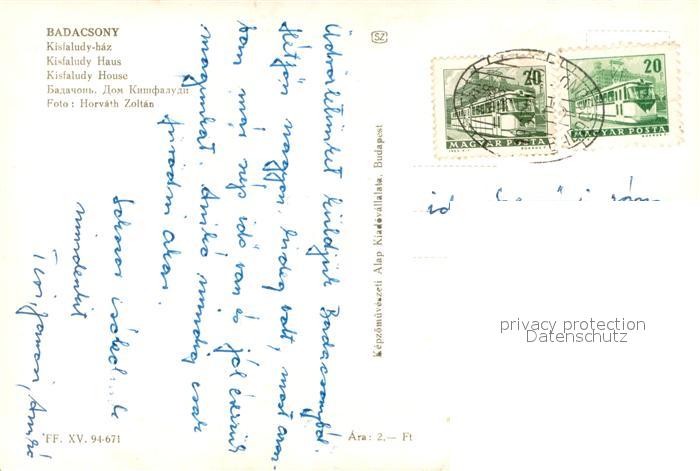 BADACSONY
Kisfaludy-ház
Kisfaludy Haus
Kisfaludy House
Бадачонь. Дом Кишфалуди
Foto: Horváth Zoltán
Üdvözletünket küldjük Badacsonyból.
Hétfőn nagyon hideg volt, most azon-
ban már szép idő van és jól érezzük
magunkat. Anikó mindig csak
fürödni akar.
Sokszor
mindenkit
Anikó
FF. XV. 94-671
Ára: 2,— Ft
SZ
Képzőművészeti Alap Kiadóvállalata, Budapest
20 f
MAGYAR POSTA
20 f
MAGYAR POSTA
id.
privacy protection
Datenschutz